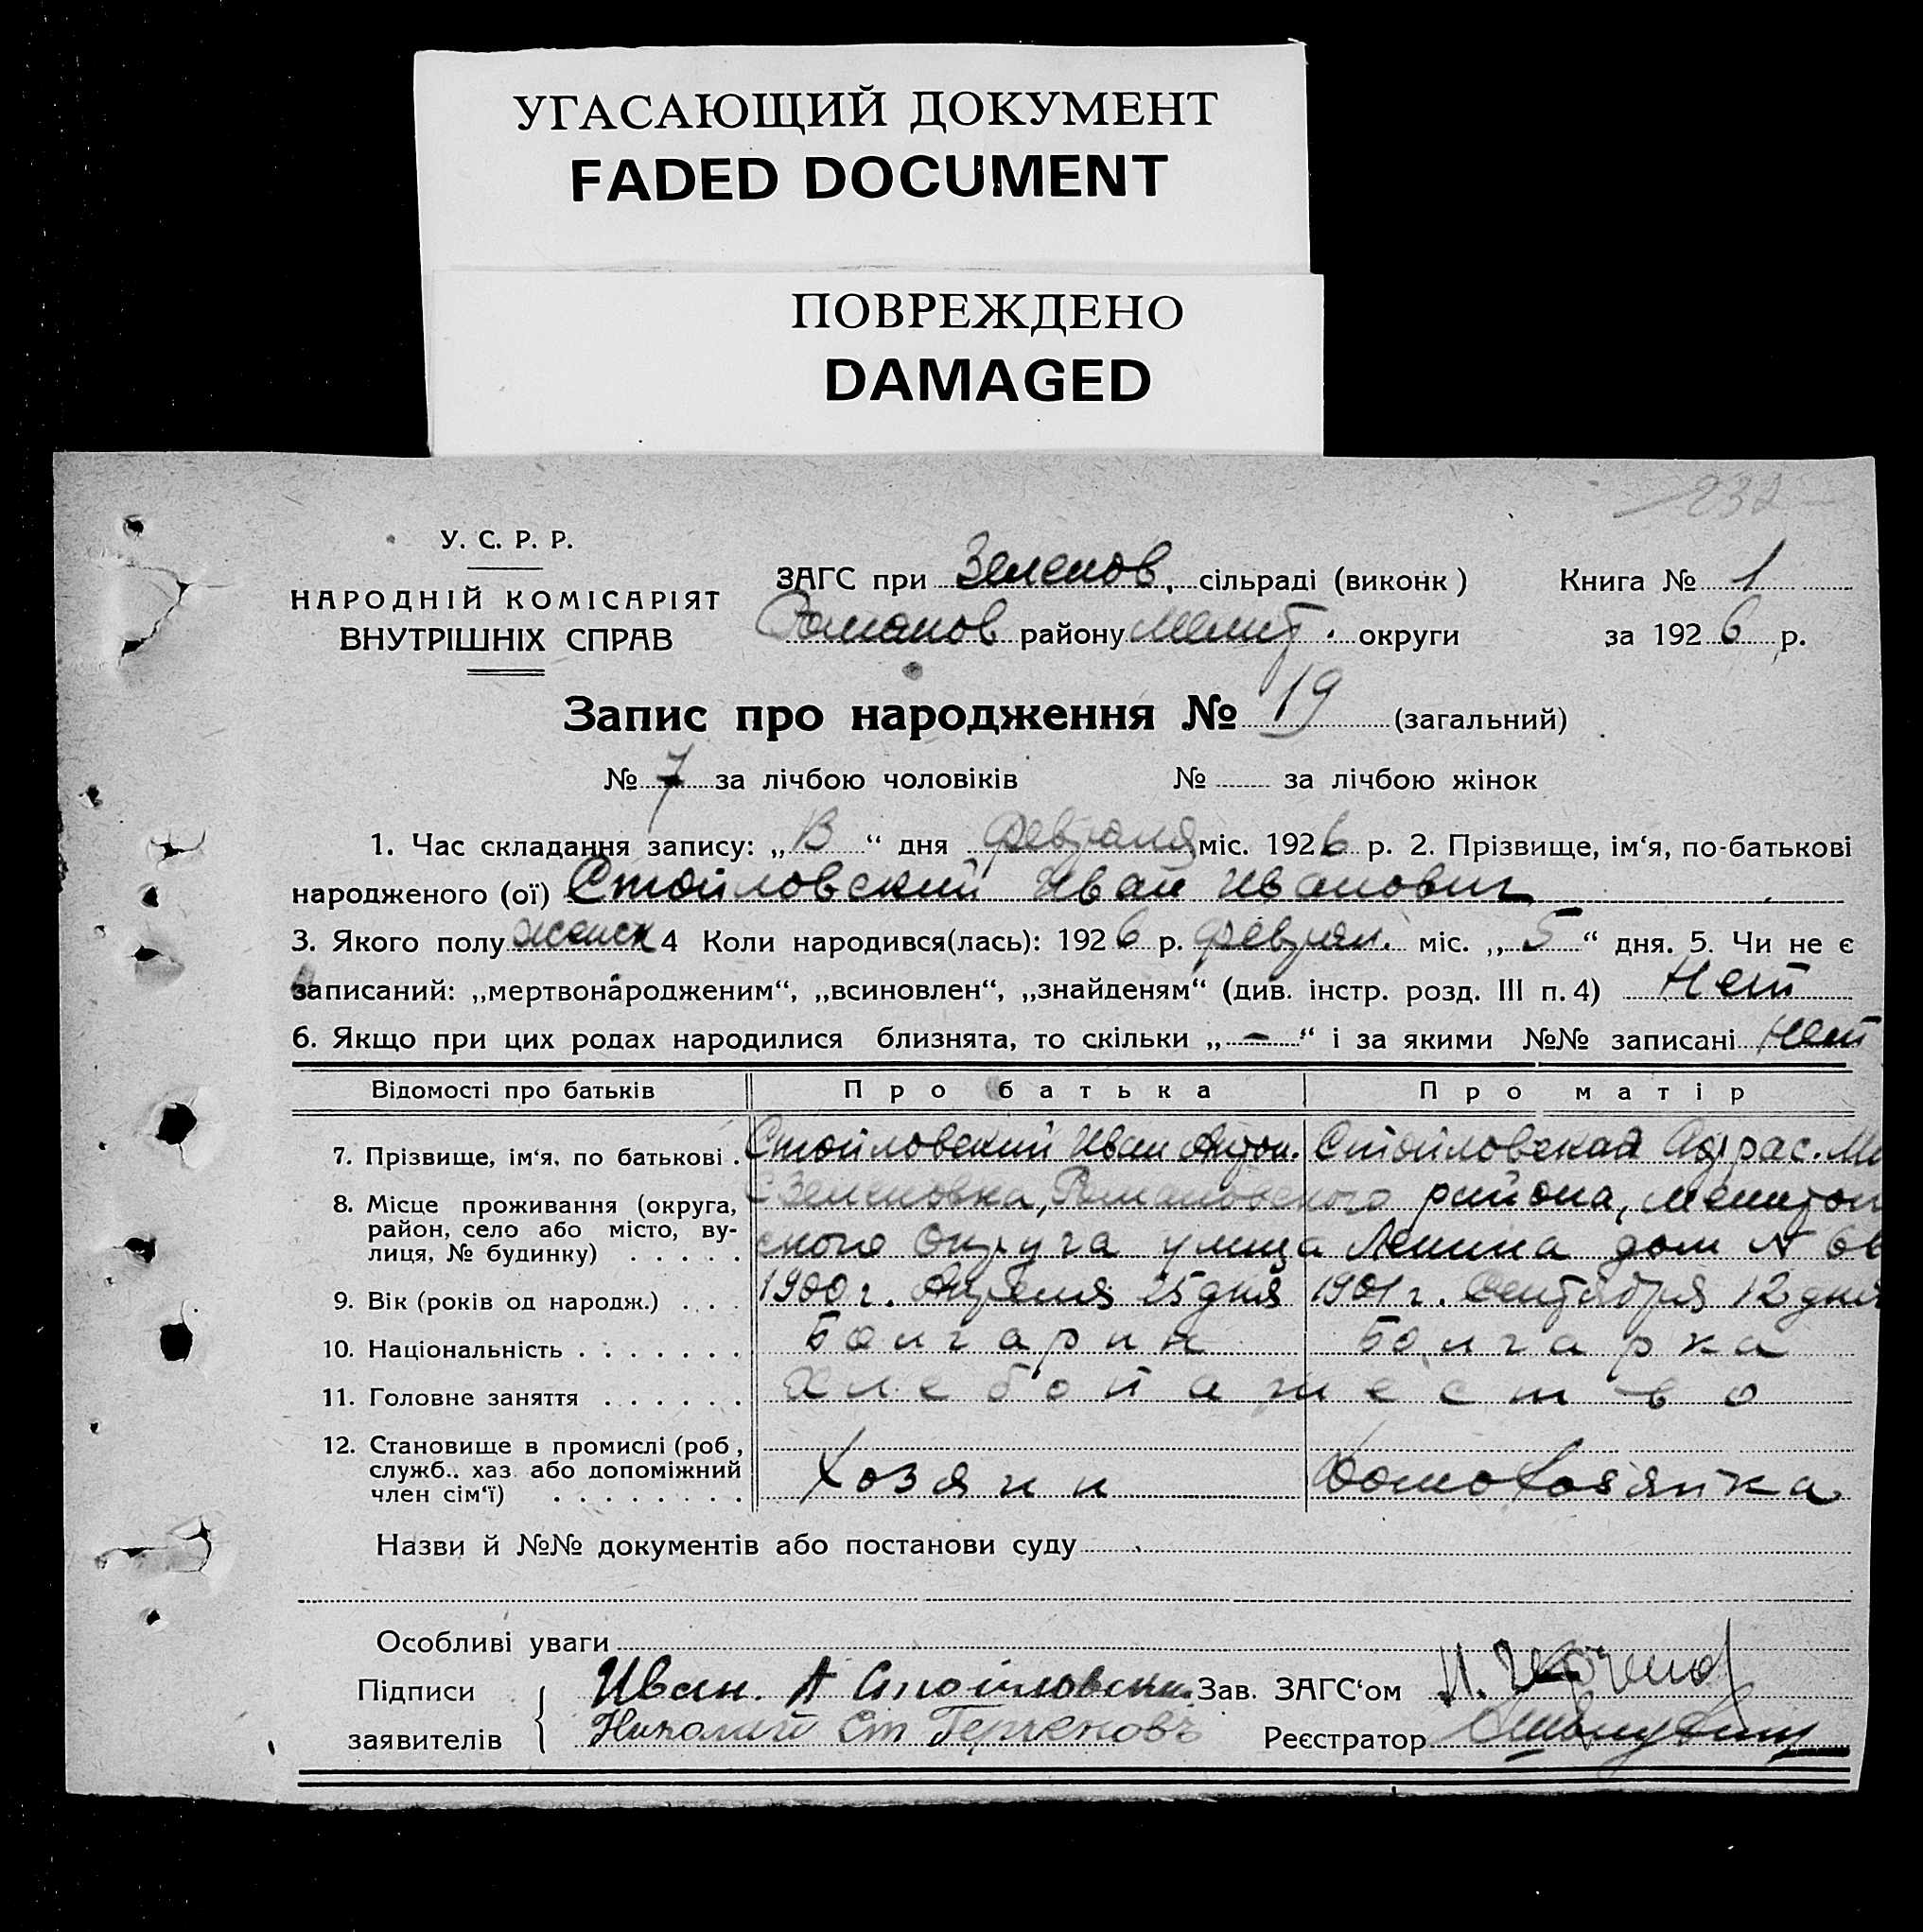 УГАСАЮЩИЙ ДОКУМЕНТ
FADED DOCUMENT
ПОВРЕЖДЕНО
DAMAGED
У. С. Р. Р.
НАРОДНІЙ КОМІСАРІЯТ
ВНУТРІШНІХ СПРАВ
ЗАГС при Зеленов. сільраді (виконк )
Романов району Мелит. округи
Книга № 1
за 1926 р.
Запис про народження № 19 (загальний)
№ 7 за лічбою чоловіків № за лічбою жінок
1. Час складання запису: „ “ дня февраля міс. 1926 р. 2. Прізвище, ім‘я, по-батькові
народженого (ої) Стойловский Иван Иванович
3. Якого полу 4 Коли народився(лась): 1926 р. феврал. міс. „5“ дня. 5. Чи не є
записаний: „мертвонародженим“, „всиновлен“, „знайденям“ (див. інстр. розд. III п. 4) Нет
6. Якщо при цих родах народилися близнята, то скільки „-“ і за якими №№ записані Нет
Відомості про батьків Про батька Про матір
7. Прізвище, ім‘я, по батькові . Стойловский Иван Антон. Стойловская
8. Місце проживання (округа, С Зеленовка, Романовского района, Мелитоп
район, село або місто, ву- ского Округа улица Ленина дом №
лиця, № будинку) . . . . .
9. Вік (років од народж.) . . . 1900 г. Апреля 25 дня 1901 г. Сентября 12 дня
10. Національність . . . . . . . Болгарин Болгарка
11. Головне заняття . . . . . . Хлебопашество
12. Становище в промислі (роб ,
служб.. хаз або допоміжний Хозяин Домохозяйка
член сім‘ї) . . . . . . . .
Назви й №№ документів або постанови суду
Особливі уваги
Підписи Иван. А Стойловски Зав. ЗАГС‘ом
заявителів Николай Ст Реєстратор